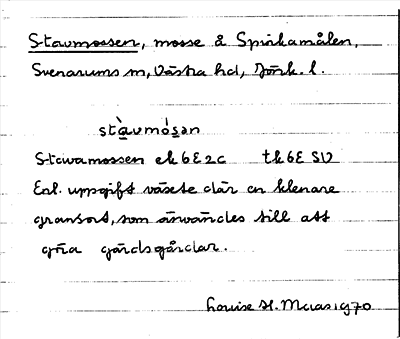 Stavmossen, mosse å Spinkamålen,
Svenarums sn, Västra hd, Jönk. l.
stàvmós̱an
Stavamossen ek 6E2c tk 6E SV
Enl. uppgift växte där en klenare
gransort, som användes till att
göra gärdsgårdar.
Louise H. Maas 1970